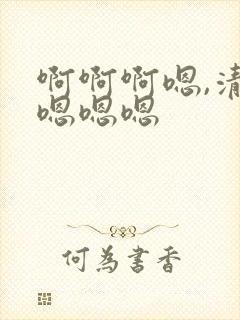 啊啊啊嗯,清
嗯嗯嗯
何為書香